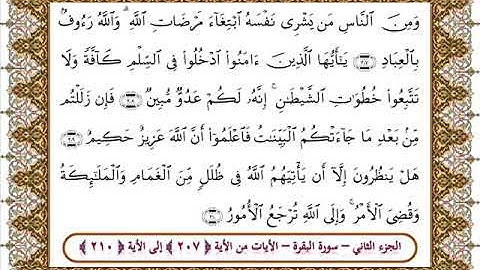 وَمِنَ ٱلنَّاسِ مَن يَشْرِى نَفْسَهُ ٱبْتِغَآءَ مَرْضَاتِ ٱللَّهِ ۗ وَٱللَّهُ رَءُوفٌۢ
بِٱلْعِبَادِ ۝٢٠٧ يَـٰٓأَيُّهَا ٱلَّذِينَ ءَامَنُوا۟ ٱدْخُلُوا۟ فِى ٱلسِّلْمِ كَآفَّةً وَلَا
تَتَّبِعُوا۟ خُطُوَٰتِ ٱلشَّيْطَـٰنِ ۚ إِنَّهُۥ لَكُمْ عَدُوٌّ مُّبِينٌ ۝٢٠٨ فَإِن زَلَلْتُم
مِّنۢ بَعْدِ مَا جَآءَتْكُمُ ٱلْبَيِّنَـٰتُ فَٱعْلَمُوٓا۟ أَنَّ ٱللَّهَ عَزِيزٌ حَكِيمٌ ۝٢٠٩
هَلْ يَنظُرُونَ إِلَّآ أَن يَأْتِيَهُمُ ٱللَّهُ فِى ظُلَلٍ مِّنَ ٱلْغَمَامِ وَٱلْمَلَـٰٓئِكَةُ
وَقُضِىَ ٱلْأَمْرُ ۚ وَإِلَى ٱللَّهِ تُرْجَعُ ٱلْأُمُورُ ۝٢١٠
الجزء الثاني – سورة البقرة – الآيات من الآية ﴿٢٠٧﴾ إلى الآية ﴿٢١٠﴾